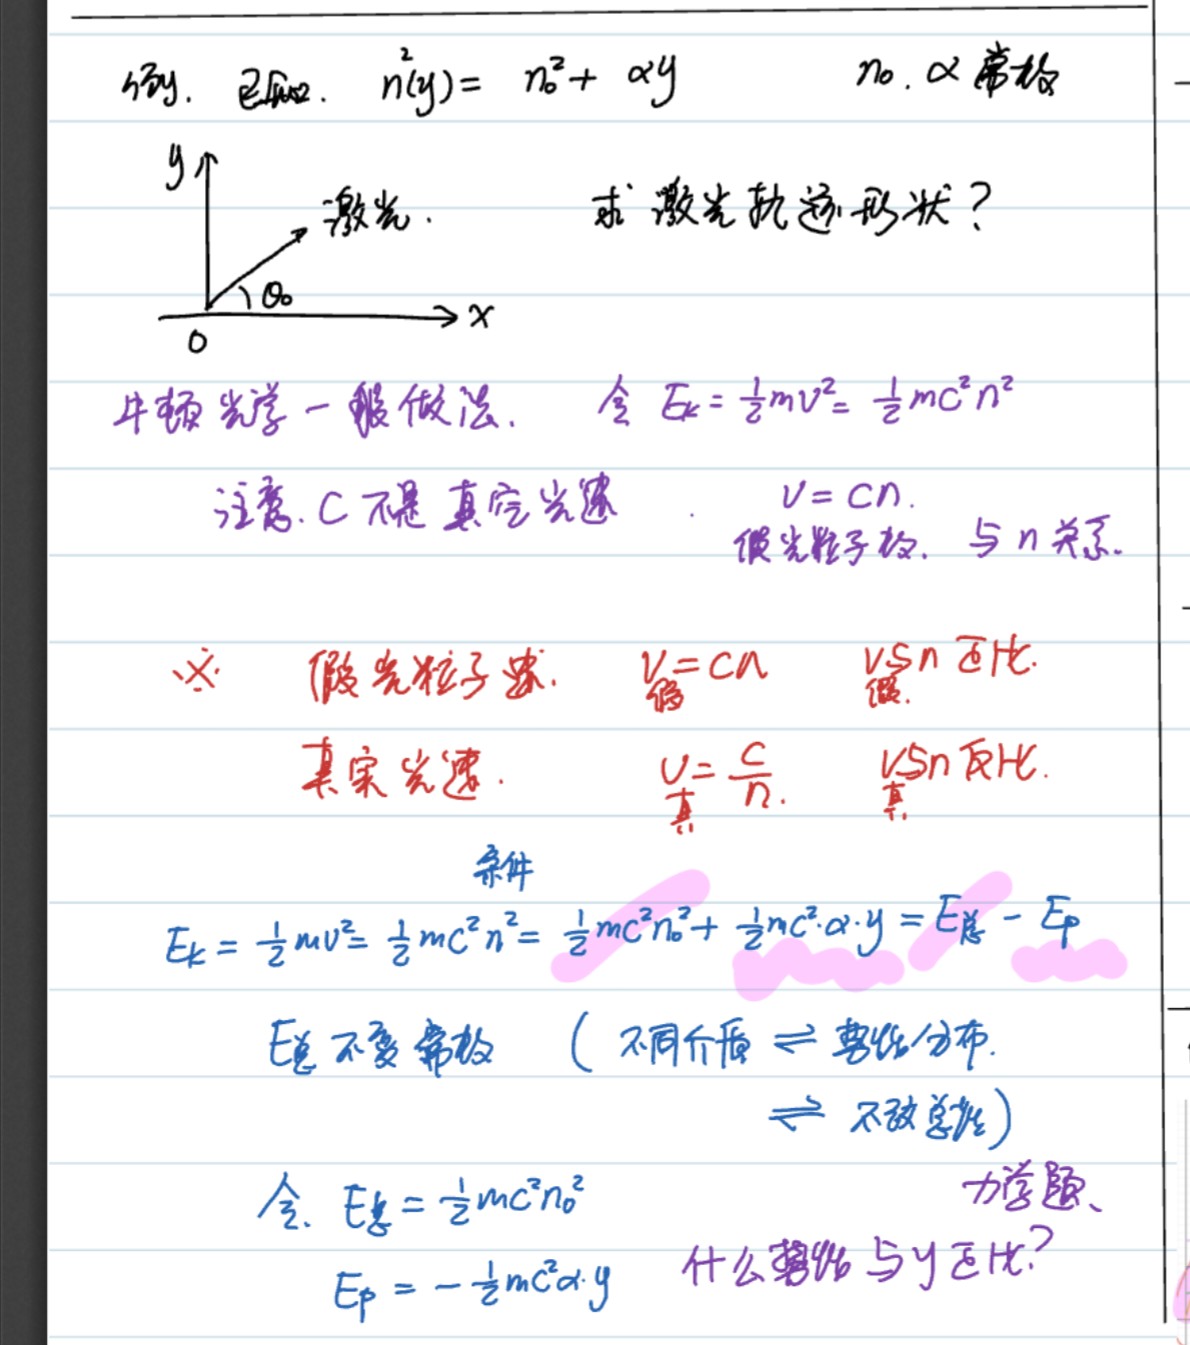 例. 已知. n²(y) = n₀² + αy    n₀. α 常数
y
激光.    求激光轨迹形状?
θ₀
x
0
牛顿光学一般做法.    令 Eₖ = ½mv² = ½mc²n²
注意. C 不是真空光速 .    v = cn.
假光粒子数.    与 n 关系.
※ 假光粒子速.    v假 = cn    v假 与 n 正比.
真实光速.    v真 = c/n.    v真 与 n 反比.
条件
Eₖ = ½mv² = ½mc²n² = ½mc²n₀² + ½mc²·α·y = E总 - Eₚ
E总 不变常数    ( 不同介质 ⇌ 势能分布.
⇌ 不改总能 )
令. E总 = ½mc²n₀²    力学题、
Eₚ = - ½mc²α·y    什么势能与 y 正比?